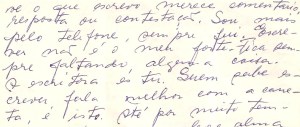 ve o que escrevo merece comentário,
resposta ou contestação. Sou mais
pelo telefone, sempre fui. Escre-
ver não é o meu forte. Fica sem-
pre faltando, alguma coisa.
A escritora és tu. Quem sabe es-
crever, fala melhor com a cane-
ta, é isto. Até por muito tem-
alma